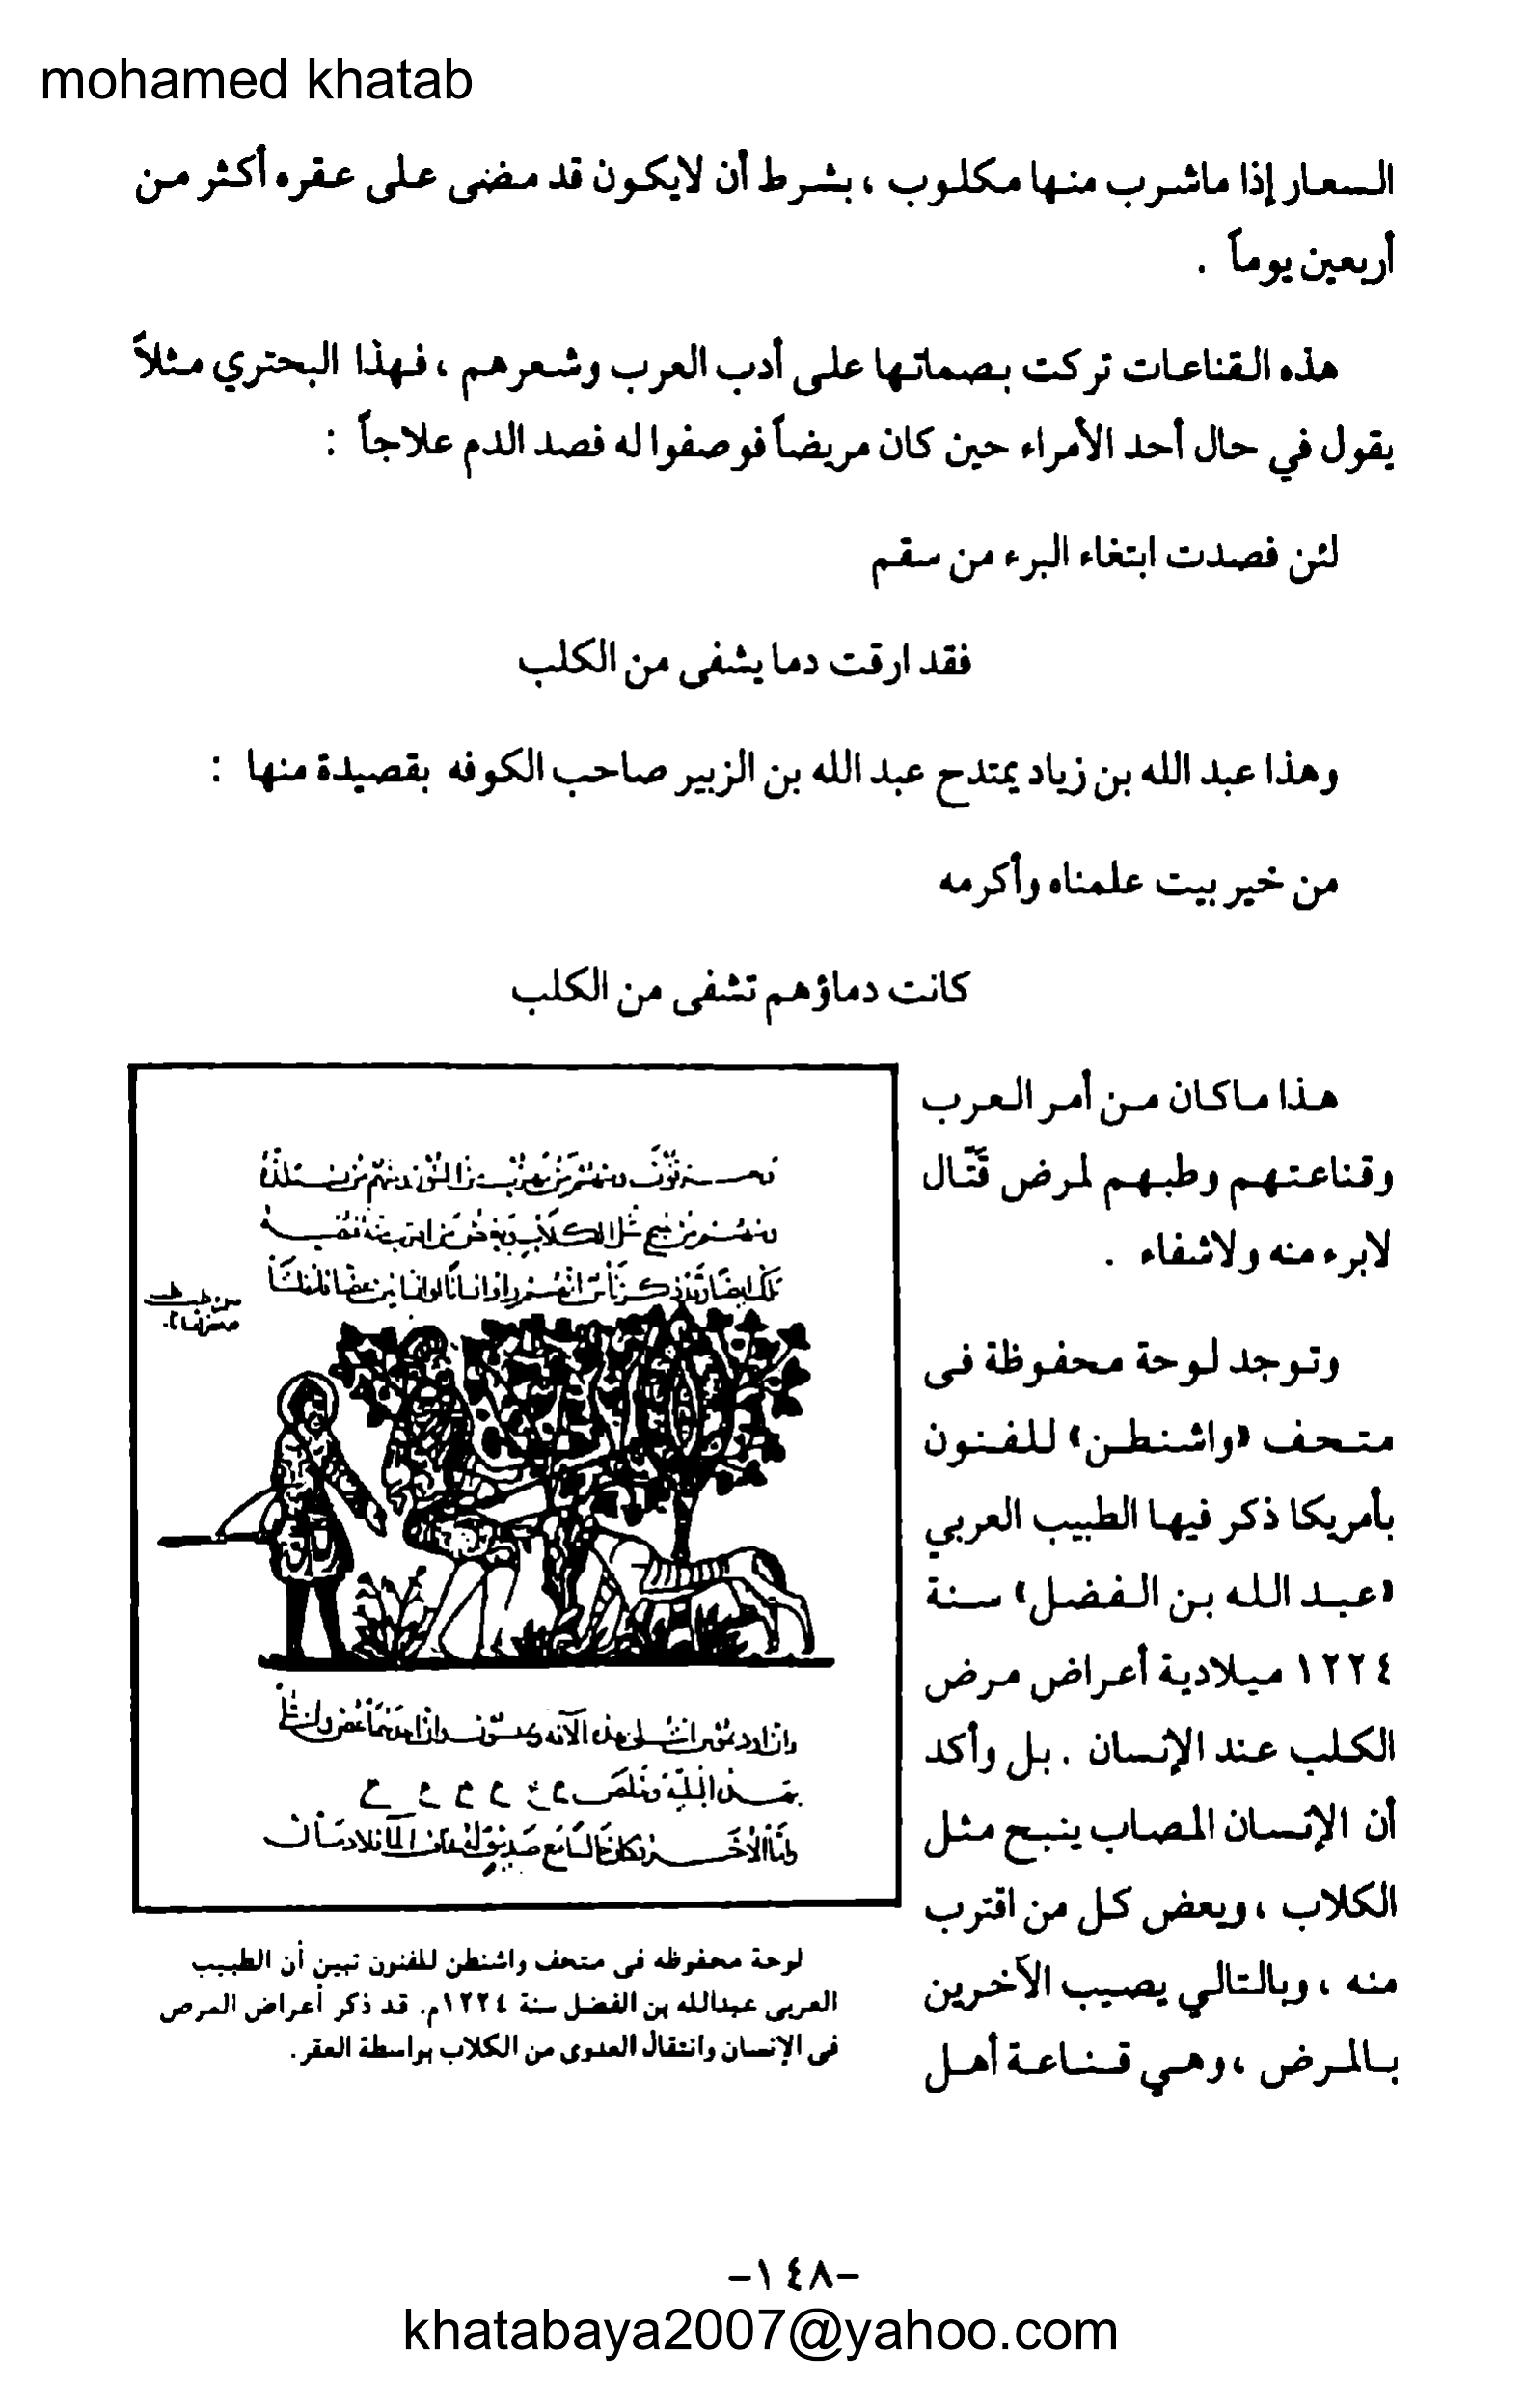 mohamed khatab
السعار إذا ماشرب منها مكلوب ، بشرط أن لايكون قد مضى على عقره أكثر من
أربعين يوماً .
هذه القناعات تركت بصماتها على أدب العرب وشعرهم ، فهذا البحتري مثلاً
يقول في حال أحد الأمراء حين كان مريضاً فوصفوا له فصد الدم علاجاً :
لئن فصدت ابتغاء البرء من سقم
فقد ارقت دما يشفى من الكلب
وهذا عبد الله بن زياد يمتدح عبد الله بن الزبير صاحب الكوفه بقصيدة منها :
من خير بيت علمناه وأكرمه
كانت دماؤهم تشفى من الكلب
هذا ماكان من أمر العرب
وقناعتهم وطبهم لمرض قَتّال
لابرء منه ولاشفاء .
وتوجد لوحة محفوظة فى
متحف «واشنطن» للفنون
بأمريكا ذكر فيها الطبيب العربي
«عبد الله بن الفضل» سنة
١٢٢٤ ميلادية أعراض مرض
الكلب عند الإنسان . بل وأكد
أن الإنسان المصاب ينبح مثل
الكلاب ، ويعض كل من اقترب
منه ، وبالتالي يصيب الآخرين
بالمرض ، وهي قناعة أهل
لوحة محفوظه فى متحف واشنطن للفنون تبين أن الطبيب
العربى عبدالله بن الفضل سنة ١٢٢٤م. قد ذكر أعراض المرض
فى الإنسان وانتقال العدوى من الكلاب بواسطة العقر.
-١٤٨-
khatabaya2007@yahoo.com